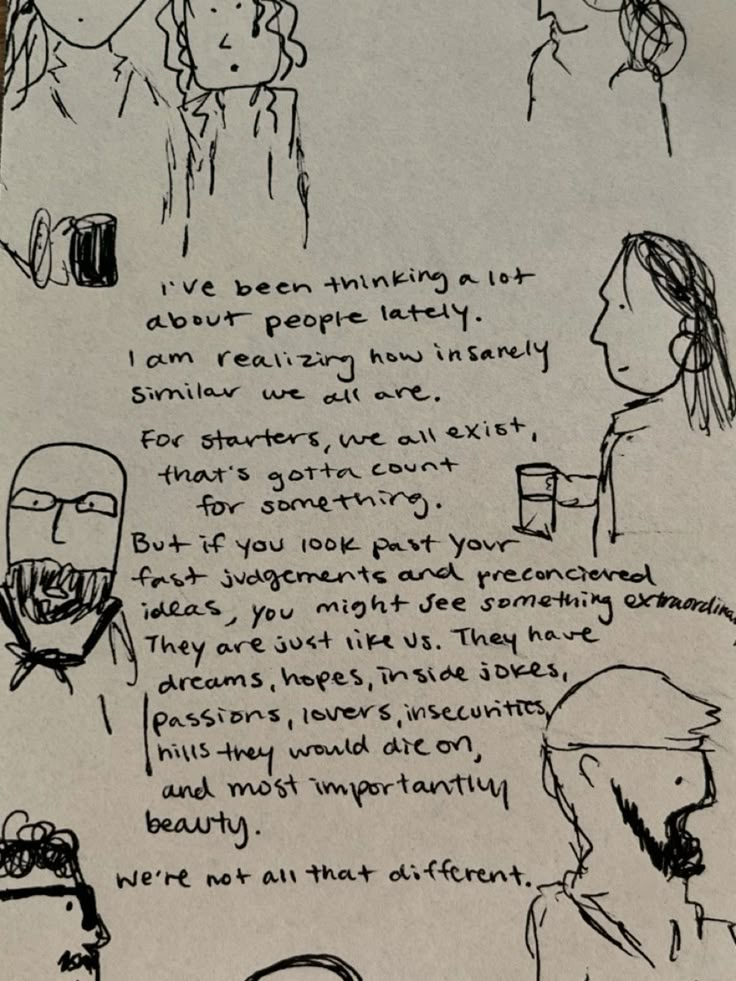 I've been thinking a lot
about people lately.
I am realizing how insanely
similar we all are.
For starters, we all exist,
that's gotta count
for something.
But if you look past your
fast judgements and preconcieved
ideas, you might see something extraordina
They are just like us. They have
dreams, hopes, inside jokes,
passions, lovers, insecurities,
hills they would die on,
and most importantly
beauty.
We're not all that different.